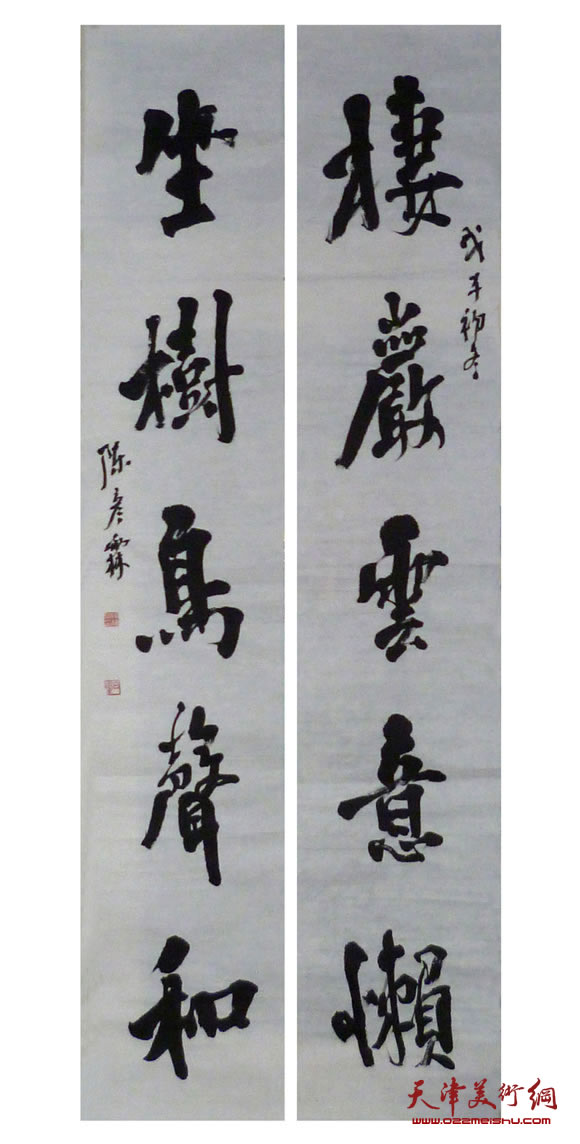 棲巖雲意懶
戊子初冬
坐樹鳥聲和
陈彦霖
天津美術網
www.022meishu.com